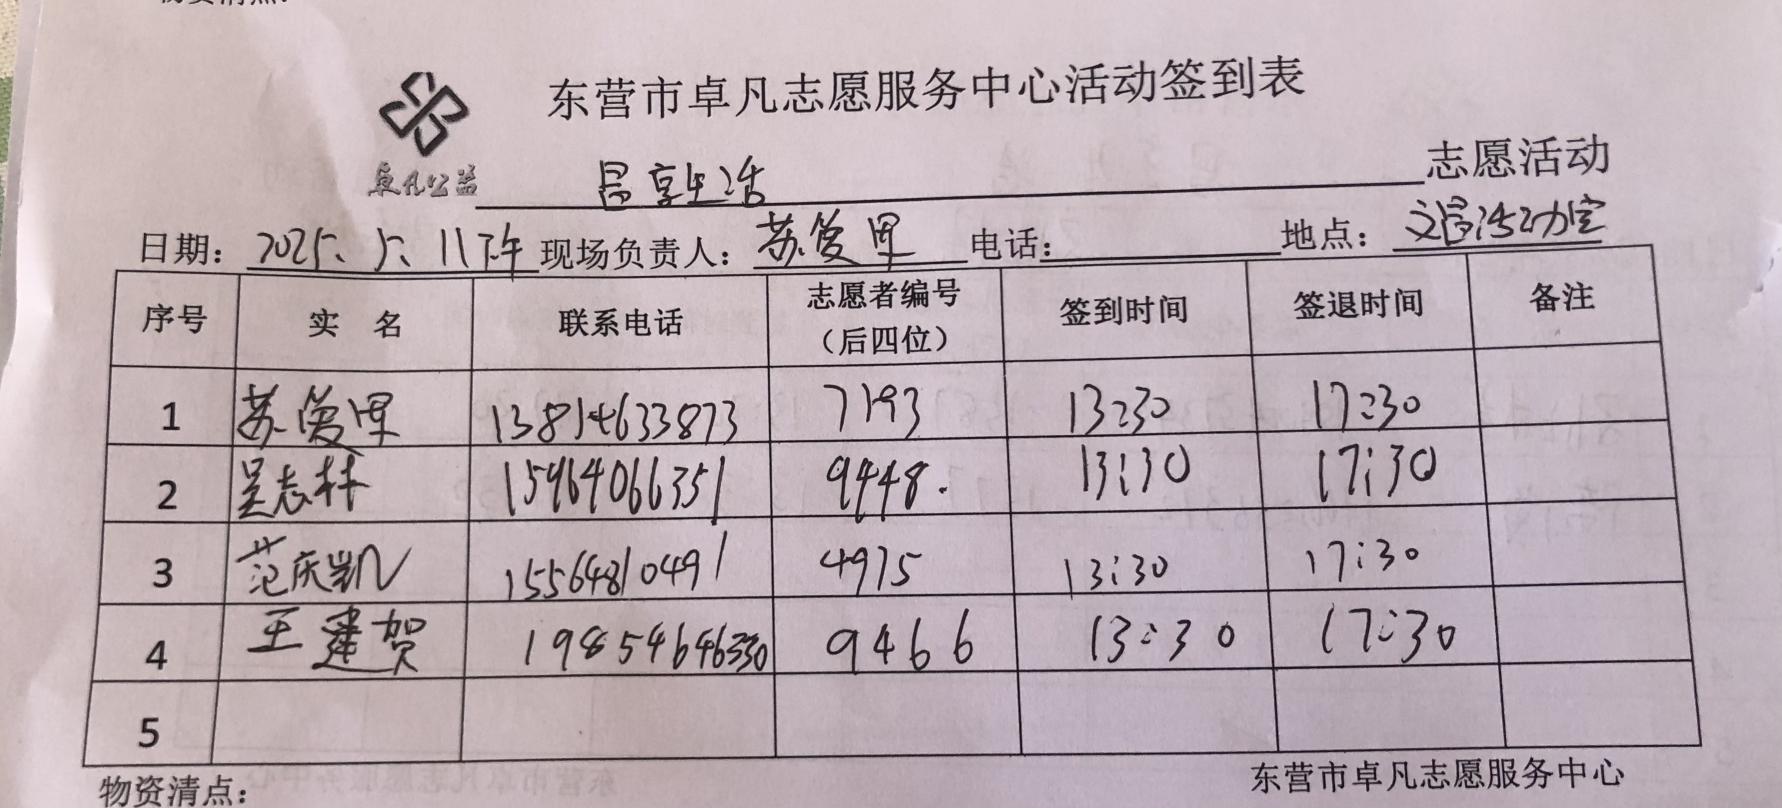 东营市卓凡志愿服务中心活动签到表
卓凡公益 昌享生活 志愿活动
日期: 2025.5.11下午 现场负责人: 苏俊里 电话: 地点: 文昌活动室
序号 实 名 联系电话 志愿者编号(后四位) 签到时间 签退时间 备注
1 苏俊里 13814633873 7193 13:30 17:30
2 吴志林 15964066351 9448. 13:30 17:30
3 范庆凯 15564810491 4975 13:30 17:30
4 王建贺 19854646330 9466 13:30 17:30
5
物资清点: 东营市卓凡志愿服务中心